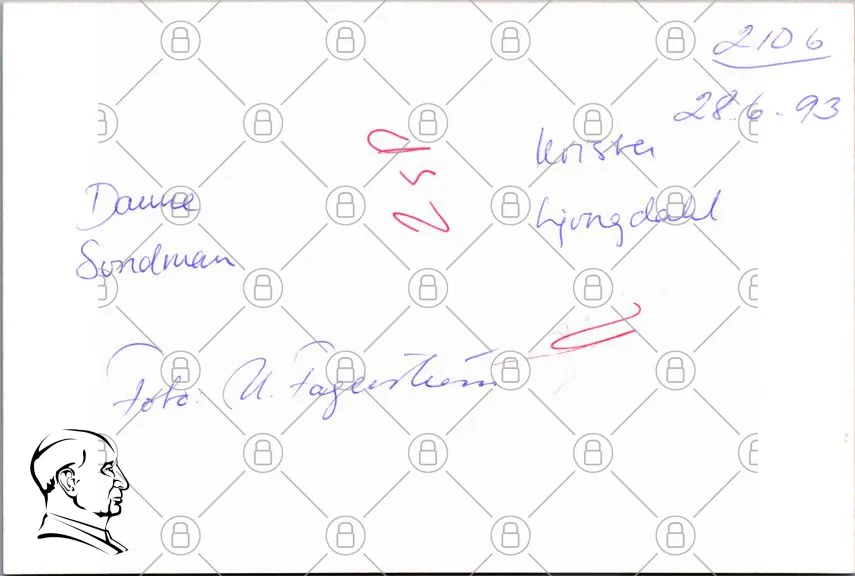 2106
28.6.93
Krister
Ljungdahl
Danne
Sundman
250
Foto: U. Fagerström